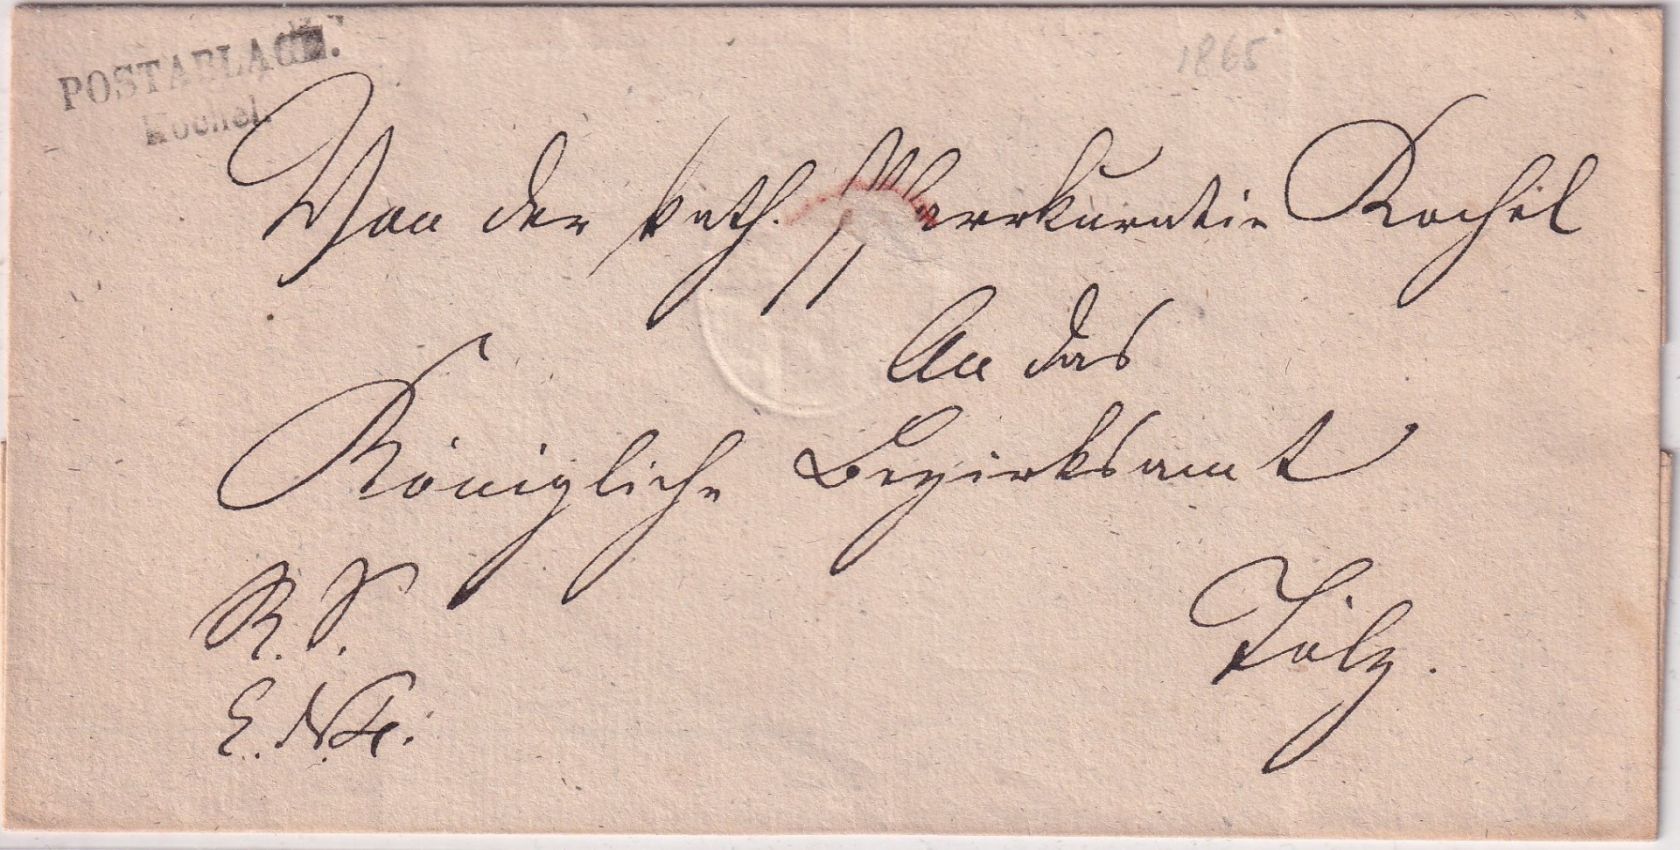 POSTABLAGE.
Kochel.
1865
Von der kath. Pfarrkuratie Kochel
An das
Königliche Bezirksamt
R. S.
Tölz.
E. No 4.